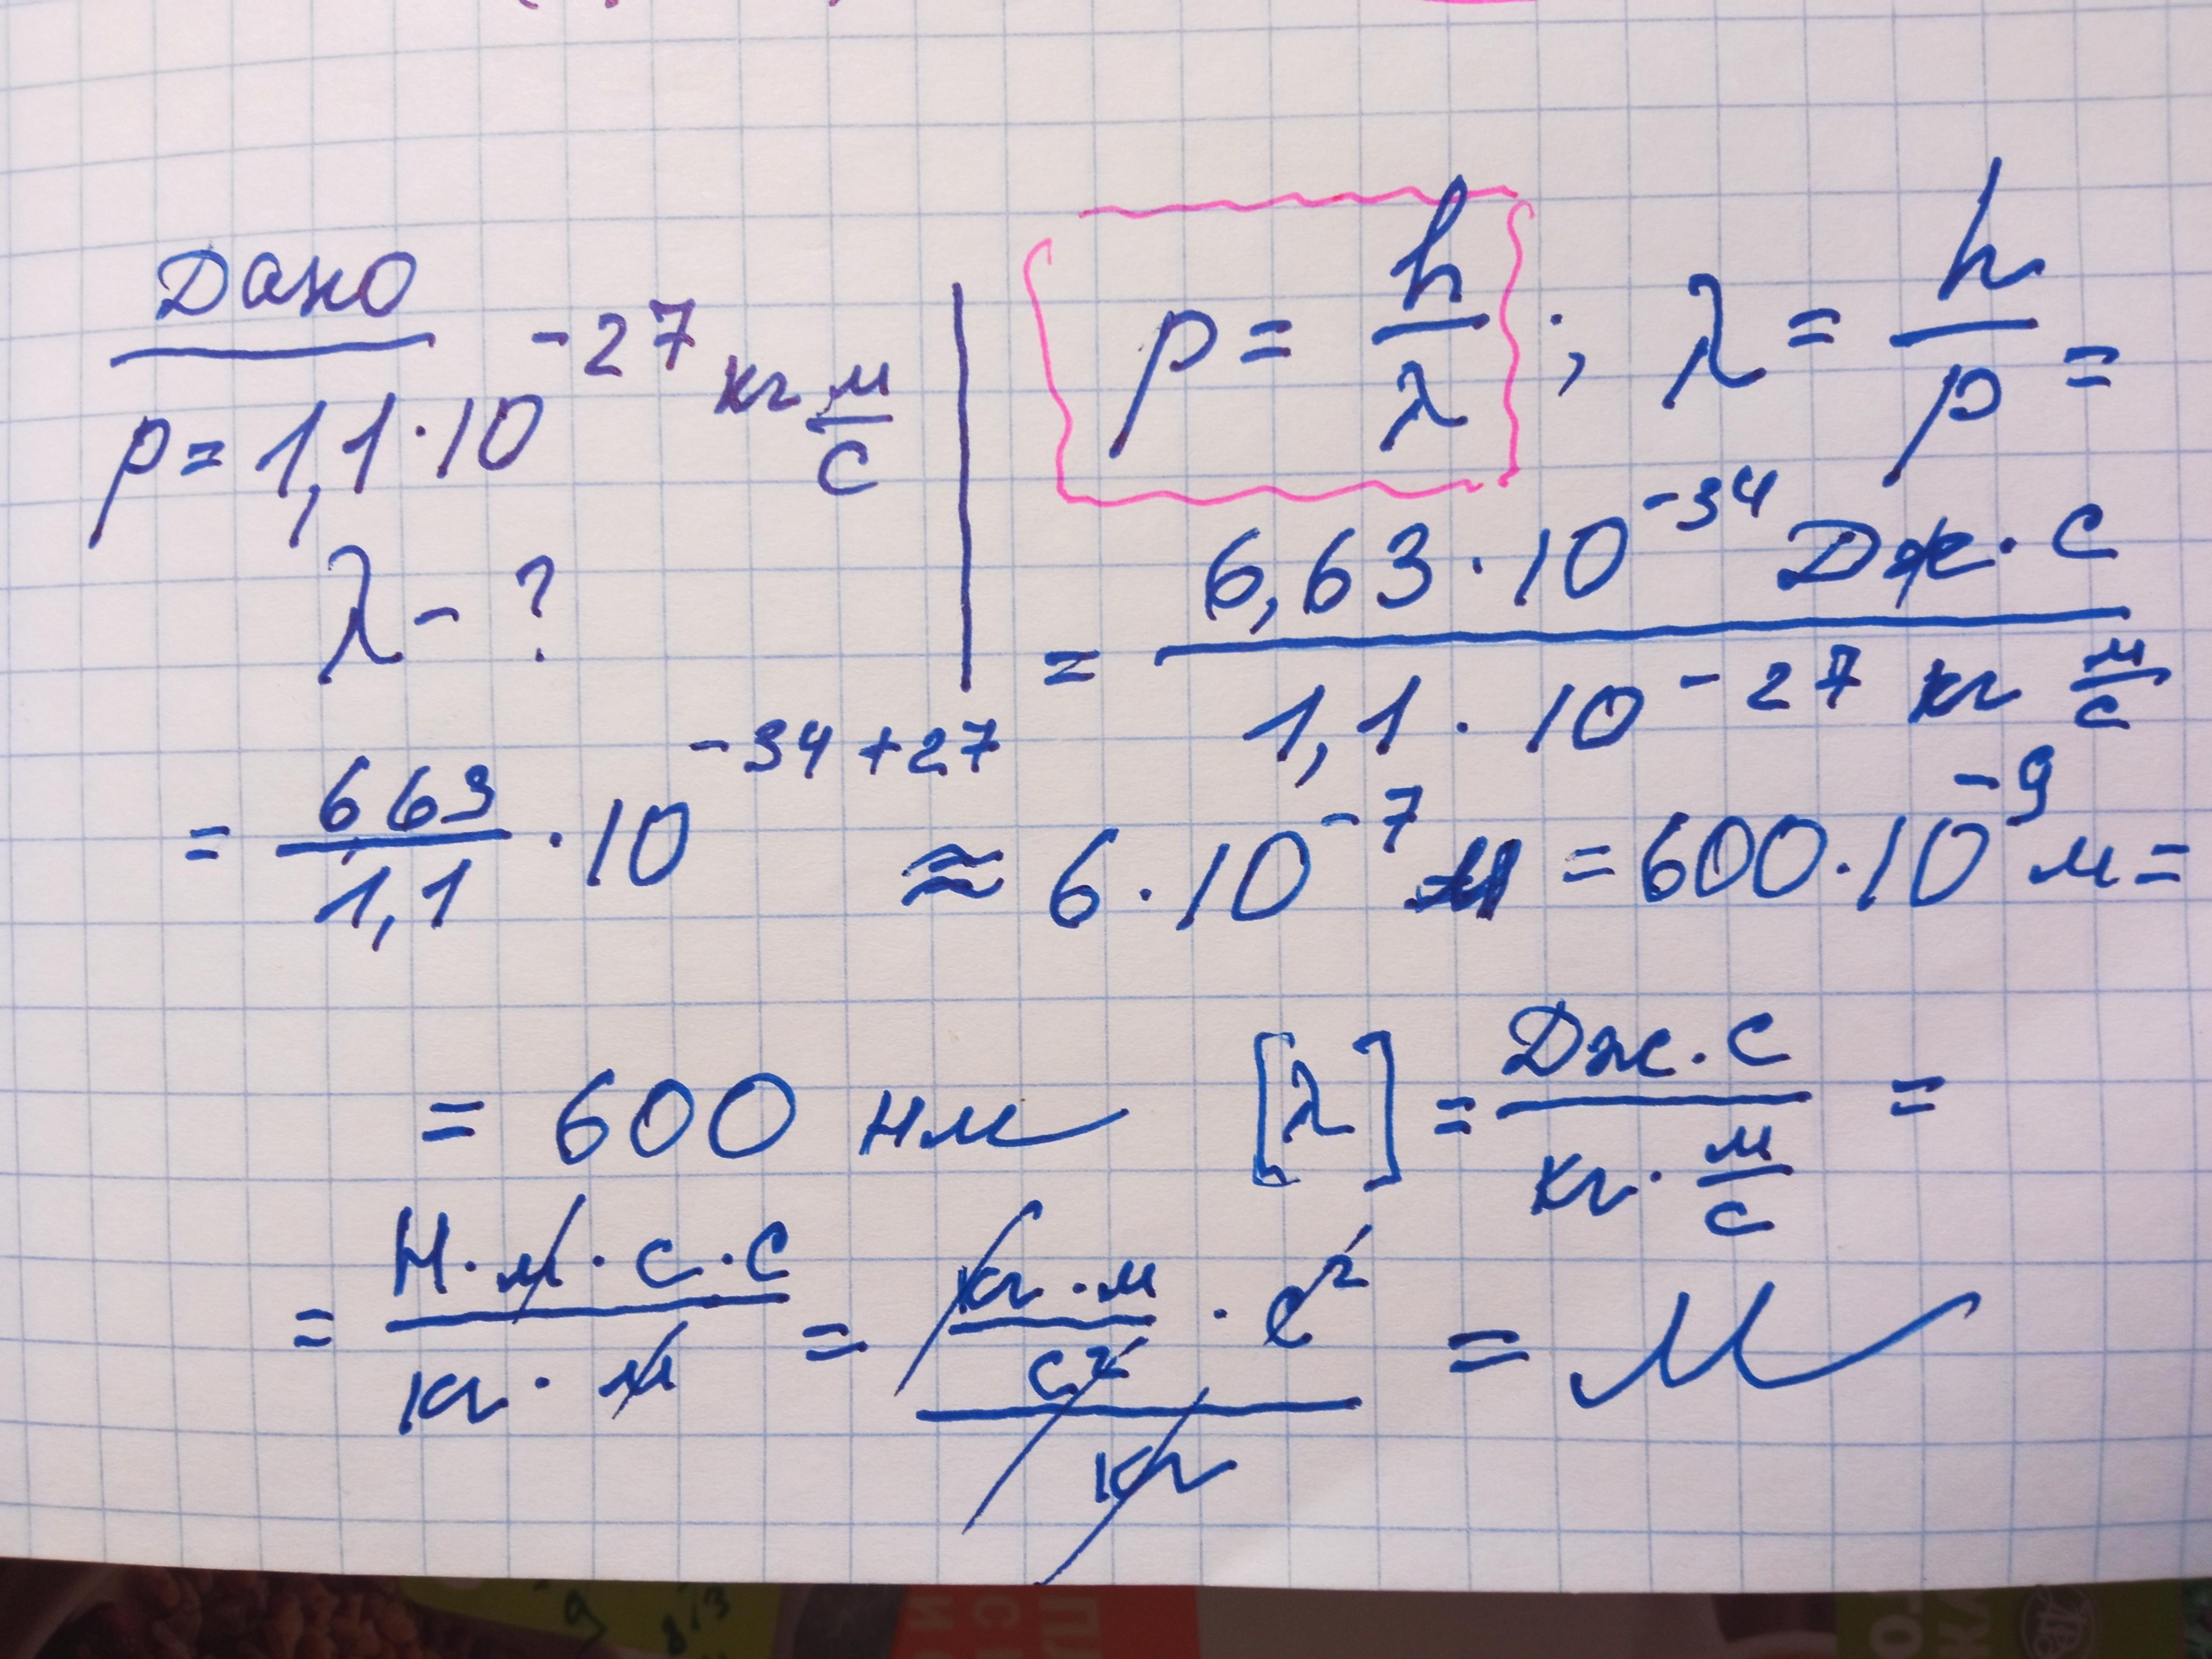 Дано
p = 1,1 · 10^-27 кг м/с
λ - ?
p = h/λ ; λ = h/p =
= 6,63 · 10^-34 Дж · с / 1,1 · 10^-27 кг м/с
= 663/1,1 · 10^-34+27 ≈ 6 · 10^-7 м = 600 · 10^-9 м =
= 600 нм [λ] = Дж · с / кг · м/с =
= Н · м · с · с / кг · м = кг · м/с² · с² / кг = м